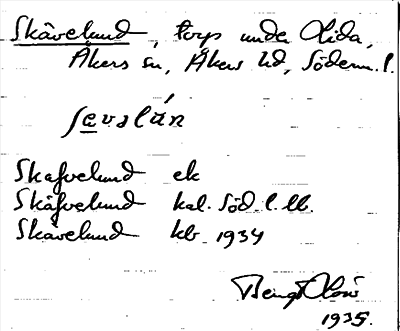 Skävelund, torp under Lida,
Åkers sn, Åkers hd, Söderm. l.
Skafvelund ek
Skäfvelund kal. Söd. l. lk.
Skävelund kb 1934
Bengt
1935.